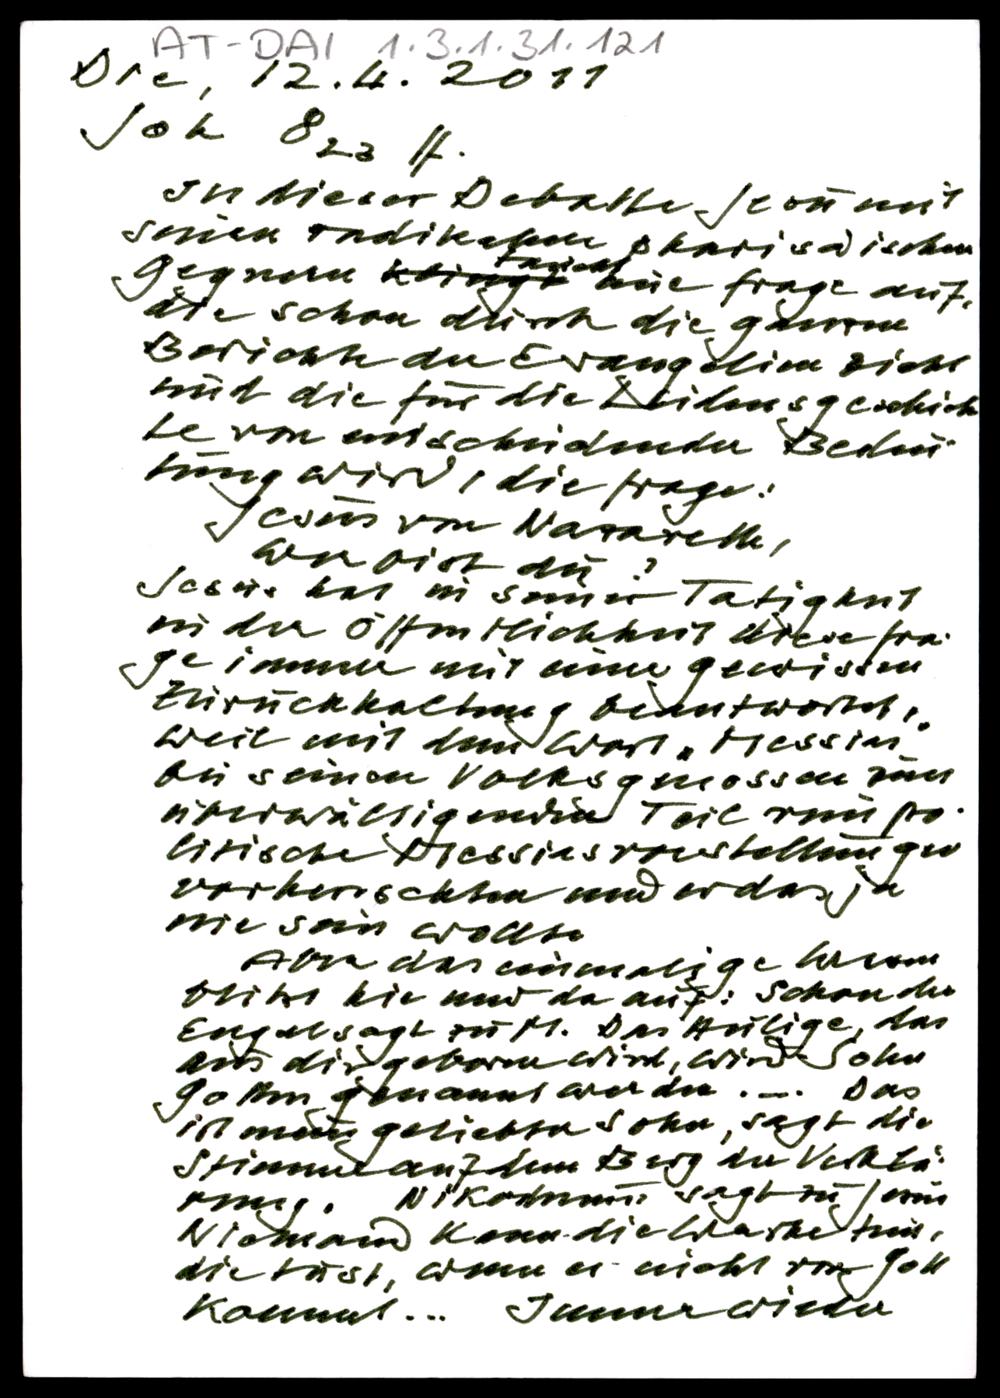 AT-DAI 1.3.1.31.121
Die, 12.4.2011
Joh 8 23 ff.
In dieser Debatte Jesu mit
seinen radikalen pharisäischen
Gegnern klingt taucht eine Frage auf,
die schon durch die ganzen
Berichte der Evangelien zieht
und die für die Leidensgeschich
te von entscheidender Bedeu-
tung wird, die Frage:
Jesus von Nazareth,
wer bist du?
Jesus hat in seiner Tätigkeit
in der Öffentlichkeit diese Fra-
ge immer mit einer gewissen
Zurückhaltung beantwortet,
weil mit dem Wort „Messias"
bei seinen Volksgenossen zum
überwältigenden Teil rein po-
litische Messiasvorstellungen
vorherrschten und er das ja
nie sein wollte
Aber das einmalige
blitzt hie und da auf: Schon der
Engel sagt zu M. Das Heilige, das
aus dir geboren wird, wird Sohn
Gottes genannt werden ... Das
ist mein geliebter Sohn, sagt die
Stimme auf dem Berg der Verklä-
rung. Nikodemus sagt zu Jesus
Niemand kann die Werke tun,
die du tust, wenn er nicht von Gott
kommt... Immer wieder